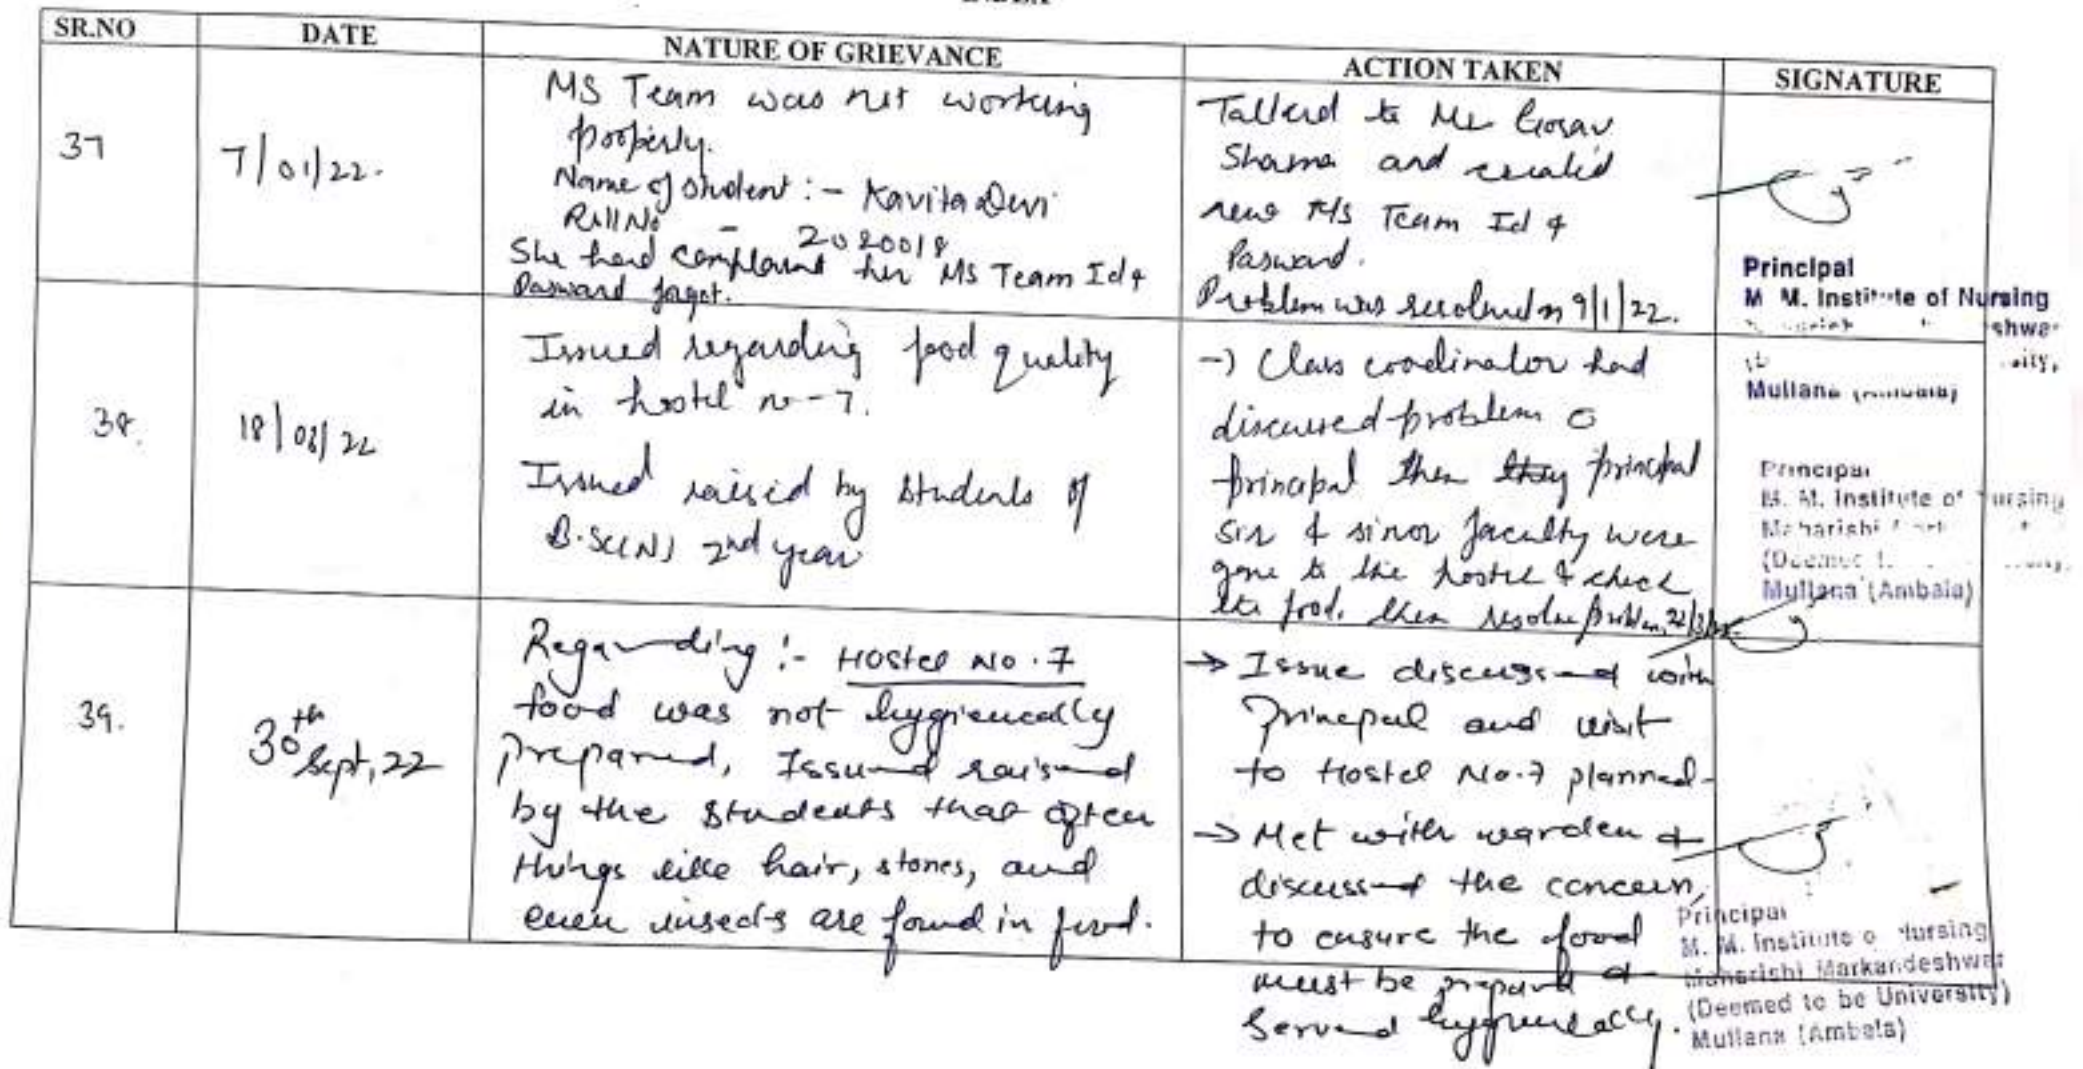 SR.NO DATE NATURE OF GRIEVANCE ACTION TAKEN SIGNATURE
37
7/01/22.
MS Team was not working
properly.
Name of student :- Kavita Devi
Roll No - 2020018
She had complaint her MS Team Id &
Pasward forget.
Talked to Mr Gorav
Sharma and
new Ms Team Id &
Pasward.
Problem was resolved on 9/1/22.
Principal
M. M. Institute of Nursing
Mullana (Ambala)
38.
18/ /22
Issued regarding food quality
in hostel no-7.
Issued raised by students of
B.Sc(N) 2nd year
→ Class coordinator had
discussed problem
principal then principal
sir & sinor faculty were
gone to the hostel & check
the food. then resolve problem,
Principal
M. M. Institute of Nursing
Maharishi
(Deemed
Mullana (Ambala)
39.
30th Sept, 22
Regarding :- Hostel No. 7
food was not hygienically
prepared, Issued raised
by the students that often
things like hair, stones, and
even insects are found in food.
→ Issue discussed with
Principal and visit
to Hostel No.7 planned-
→ Met with warden &
discussed the concern,
to ensure the food
must be prepared &
served hygienically.
Principal
M. M. Institute o Nursing
Maharishi Markandeshwar
(Deemed to be University)
Mullana (Ambala)